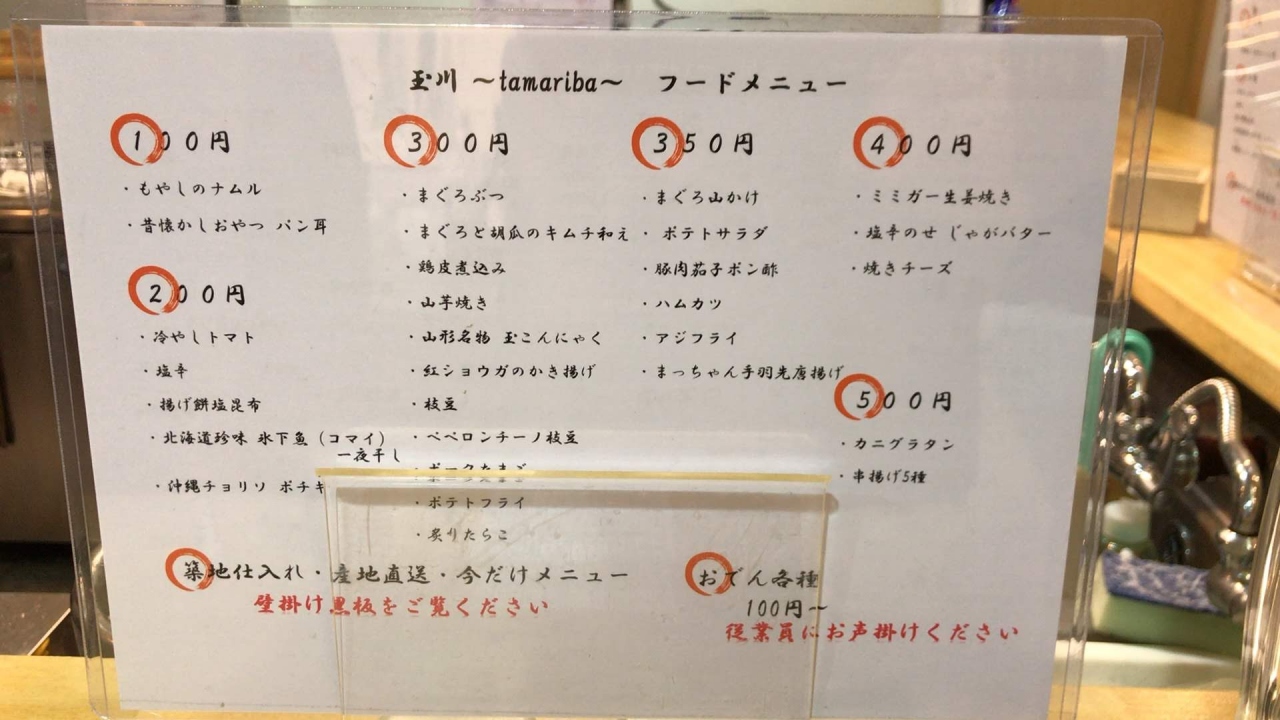 玉川 ～tamariba～ フードメニュー
100円
・もやしのナムル
・昔懐かしおやつ パン耳
200円
・冷やしトマト
・塩辛
・揚げ餅塩昆布
・北海道珍味 氷下魚（コマイ）
一夜干し
・沖縄チョリソ ポチギ
300円
・まぐろぶつ
・まぐろと胡瓜のキムチ和え
・鶏皮煮込み
・山芋焼き
・山形名物 玉こんにゃく
・紅ショウガのかき揚げ
・枝豆
・ペペロンチーノ枝豆
・ポークたまご
・ポテトフライ
・炙りたらこ
350円
・まぐろ山かけ
・ポテトサラダ
・豚肉茄子ポン酢
・ハムカツ
・アジフライ
・まっちゃん手羽先唐揚げ
400円
・ミミガー生姜焼き
・塩辛のせ じゃがバター
・焼きチーズ
500円
・カニグラタン
・串揚げ5種
築地仕入れ・産地直送・今だけメニュー
壁掛け黒板をご覧ください
おでん各種
100円～
従業員にお声掛けください